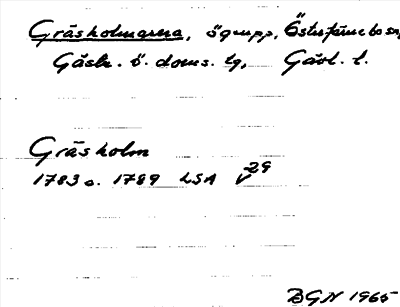 Gräsholmarna, ögrupp, Österfärnebo sn,
Gästr. ö. doms. tg, Gävl. l.
Gräsholm
1783 o. 1789 LSA V29
BGN 1965